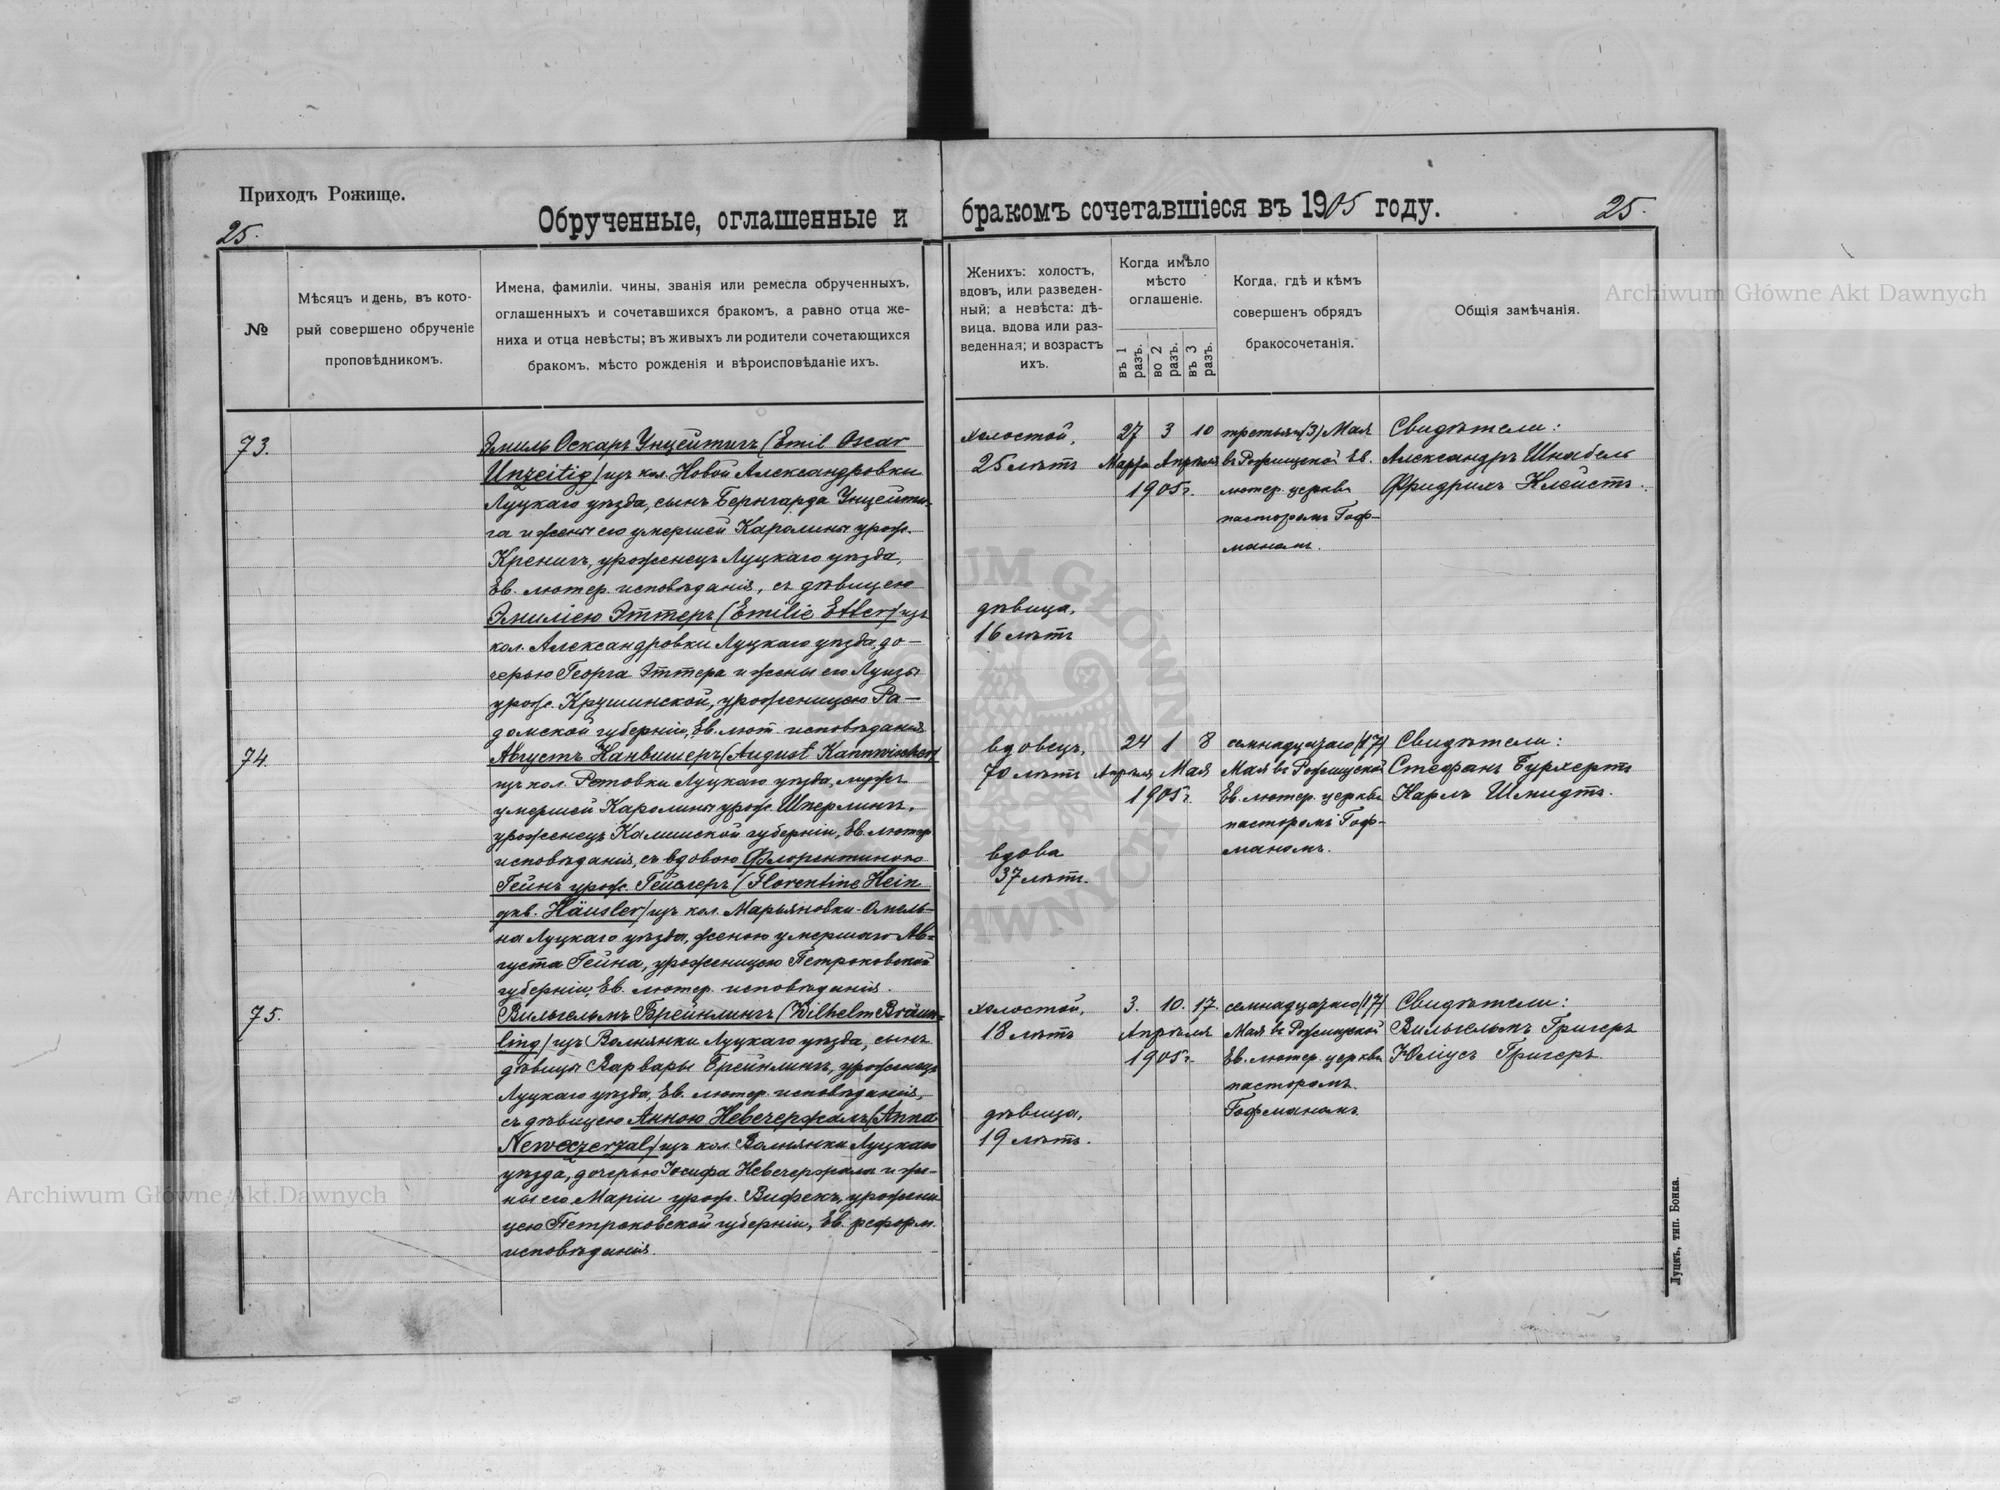 Приходъ Рожище.
25.
Обрученные, оглашенные и
бракомъ сочетавшіеся въ 1905 году.
25.
№
Мѣсяцъ и день, въ кото-
рый совершено обрученіе
проповѣдникомъ.
Имена, фамиліи, чины, званія или ремесла обрученныхъ,
оглашенныхъ и сочетавшихся бракомъ, а равно отца же-
ниха и отца невѣсты; въ живыхъ ли родители сочетающихся
бракомъ, мѣсто рожденія и вѣроисповѣданіе ихъ.
Женихъ: холостъ,
вдовъ, или разведен-
ный; а невѣста: дѣ-
вица, вдова или раз-
веденная; и возрастъ
ихъ.
Когда имѣло
мѣсто
оглашеніе.
въ 1 разъ.
во 2 разъ.
въ 3 разъ.
Когда, гдѣ и кѣмъ
совершенъ обрядъ
бракосочетанія.
Общія замѣчанія.
73.
Эмиль Оскаръ Унцейтигъ (Emil Oscar
Unzeitig) изъ кол. Новой Александровки
Луцкаго уѣзда, сынъ Бернгарда Унцейти-
га и жены его умершей Каролины урож.
Кренигъ, уроженецъ Луцкаго уѣзда,
Ев. лютер. исповѣданія, съ дѣвицею
Эмиліею Эттеръ (Emilie Etter) изъ
кол. Александровки Луцкаго уѣзда, до-
черью Георга Эттера и жены его Луизы
урож. Крушинской, уроженицею Ра-
домской губерніи, Ев. лют. исповѣданія
холостой,
25 лѣтъ
дѣвица,
16 лѣтъ
27 3 10
Марта Апрѣля
1905 г.
третьяго (3) Мая
въ Рожищской Ев.
лютер. церкви
пасторомъ Гоф-
маномъ.
Свидѣтели:
Александръ Шнабель
Фридрихъ Клейстъ.
74.
Августъ Канвишеръ (August Kannwischer)
изъ кол. Ретовки Луцкаго уѣзда, мужъ
умершей Каролины урож. Шперлингъ,
уроженецъ Калишской губерніи, Ев. лютер.
исповѣданія, съ вдовою Флорентиною
Гейнъ урож. Гейслеръ (Florentine Hein
geb. Häusler) изъ кол. Марьяновки-Омель-
на Луцкаго уѣзда, женою умершаго Ав-
густа Гейна, уроженицею Петроковской
губерніи, Ев. лютер. исповѣданія.
вдовецъ,
70 лѣтъ
вдова
37 лѣтъ.
24 1 8
Апрѣля Мая
1905 г.
семнадцатаго (17)
Мая въ Рожищской
Ев. лютер. церкви
пасторомъ Гоф-
маномъ.
Свидѣтели:
Стефанъ Бурхертъ
Карлъ Шмидтъ.
75.
Вильгельмъ Брейнлингъ (Wilhelm Bräun-
ling) изъ Волнянки Луцкаго уѣзда, сынъ
дѣвицы Варвары Брейнлингъ, уроженецъ
Луцкаго уѣзда, Ев. лютер. исповѣданія,
съ дѣвицею Анною Невечержалъ (Anna
изъ кол. Волнянки Луцкаго
уѣзда, дочерью Іосифа Невечержала и же-
ны его Маріи урож. уружени
цею Петроковской губерніи, Ев. реформ.
исповѣданія.
холостой,
18 лѣтъ
дѣвица,
19 лѣтъ.
3. 10. 17.
Апрѣля
1905 г.
семнадцатаго (17)
Мая въ Рожищской
Ев. лютер. церкви
пасторомъ
Гофманомъ
Свидѣтели:
Вильгельмъ Григеръ
Юліусъ Григеръ.
Луцкъ, тип. Бонка.
Archiwum Główne Akt Dawnych
Archiwum Główne Akt Dawnych